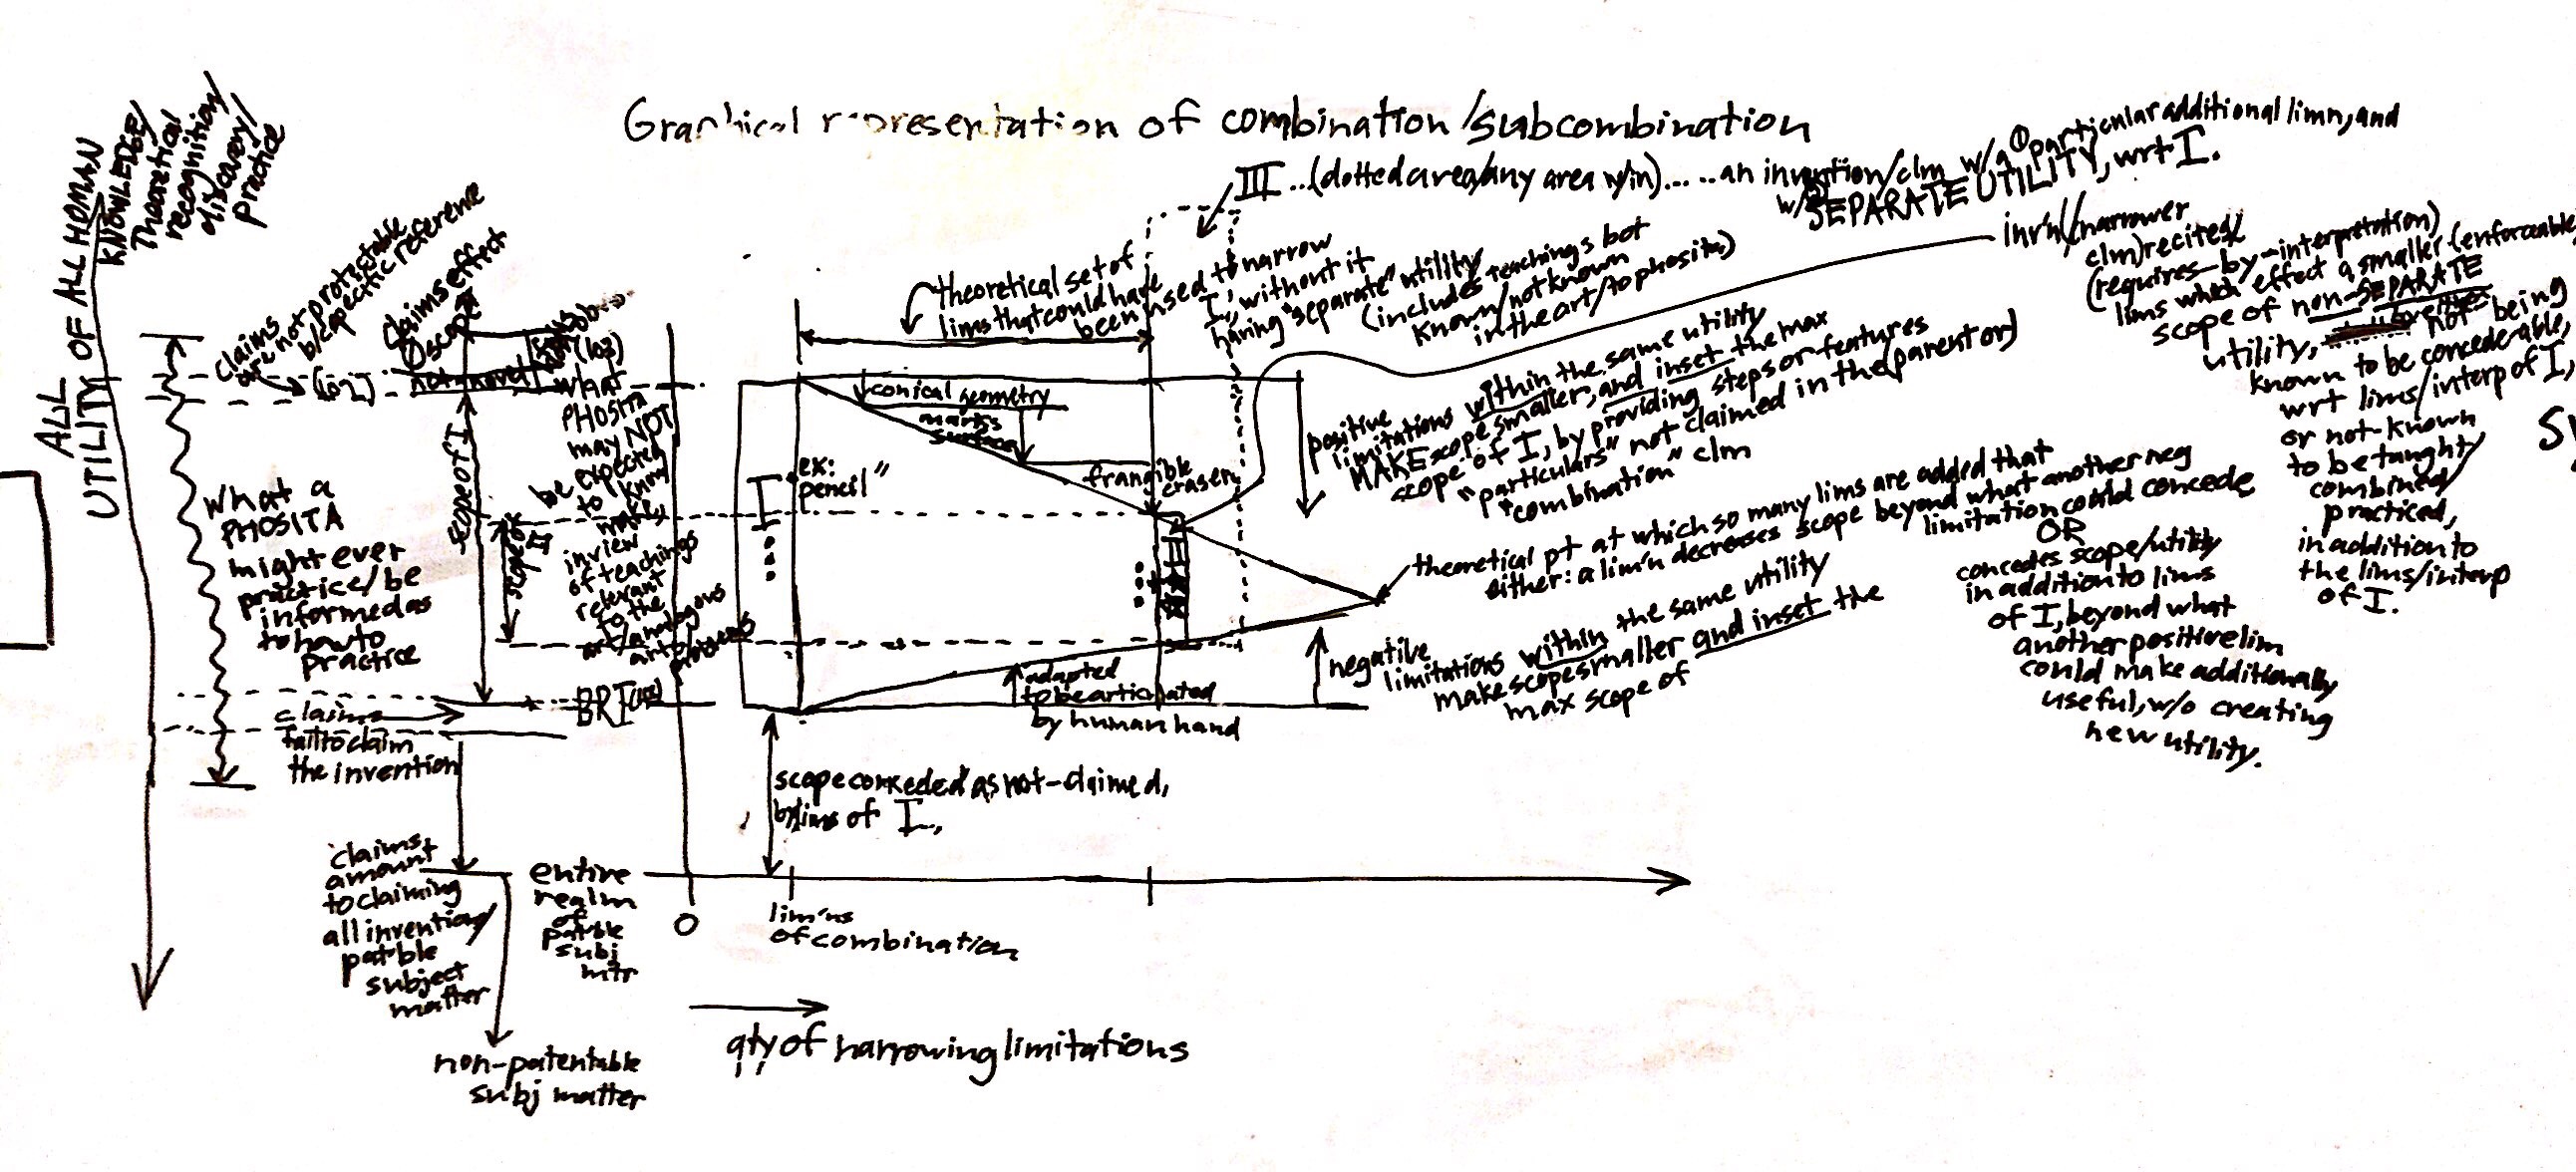 Graphical representation of combination/subcombination
ALL
UTILITY OF ALL HUMAN
KNOWLEDGE/
Theoretical
recognition/
discovery/
practice
claims
are not protectable
b/c specific reference
(102)
Claims eff
Ø scope
effect
not novel
(103)
what
PHOSITA
may NOT
be expected
to know
make,
in view
of teachings
relevant
to the
art/analogous
arts/problems
what a
PHOSITA
might ever
practice/be
informed as
to how to
practice
scope of I
scope of
II
BRI
claims
fail to claim
the invention
claims
amount
to claiming
all invention/
pat'ble
subject
matter
non-patentable
subj matter
entire
realm
of
pat'ble
subj
mtr
0
lim'ns
of combination
qty of narrowing limitations
scope conceded as not-claimed,
by lims of I,
I
ex:
"pencil"
conical geometry
marks
surface
frangible
eraser
adapted
to be articulated
by human hand
theoretical set of
lims that could have
been used to narrow
I, without it
having "separate" utility
(includes teachings bot
known/not known
in the art/to phosita)
III...(dotted area/any area w/in).....an invention/clm w/a ① particular additional limn, and
w/② SEPARATE UTILITY, wrt I.
II
positive
limitations within the same utility
MAKE scope smaller, and inset the max
scope of I, by providing steps or features
"particulars" not claimed in the (parent or)
"combination" clm
theoretical pt at which so many lims are added that
either: a lim'n decreases scope beyond what another neg
limitation could concede
OR
concedes scope/utility
in addition to lims
of I, beyond what
another positive lim
could make additionally
useful, w/o creating
new utility.
negative
limitations within the same utility
make scope smaller and inset the
max scope of
inv'n/(narrower
clm) recites/
(requires-by-interpretation)
lims which effect a smaller (enforceable
scope of non-SEPARATE
utility, not being
known to be concederable,
wrt lims/interp of I,
or not-known
to be taught/
combined/
practiced,
in addition to
the lims/interp
of I.